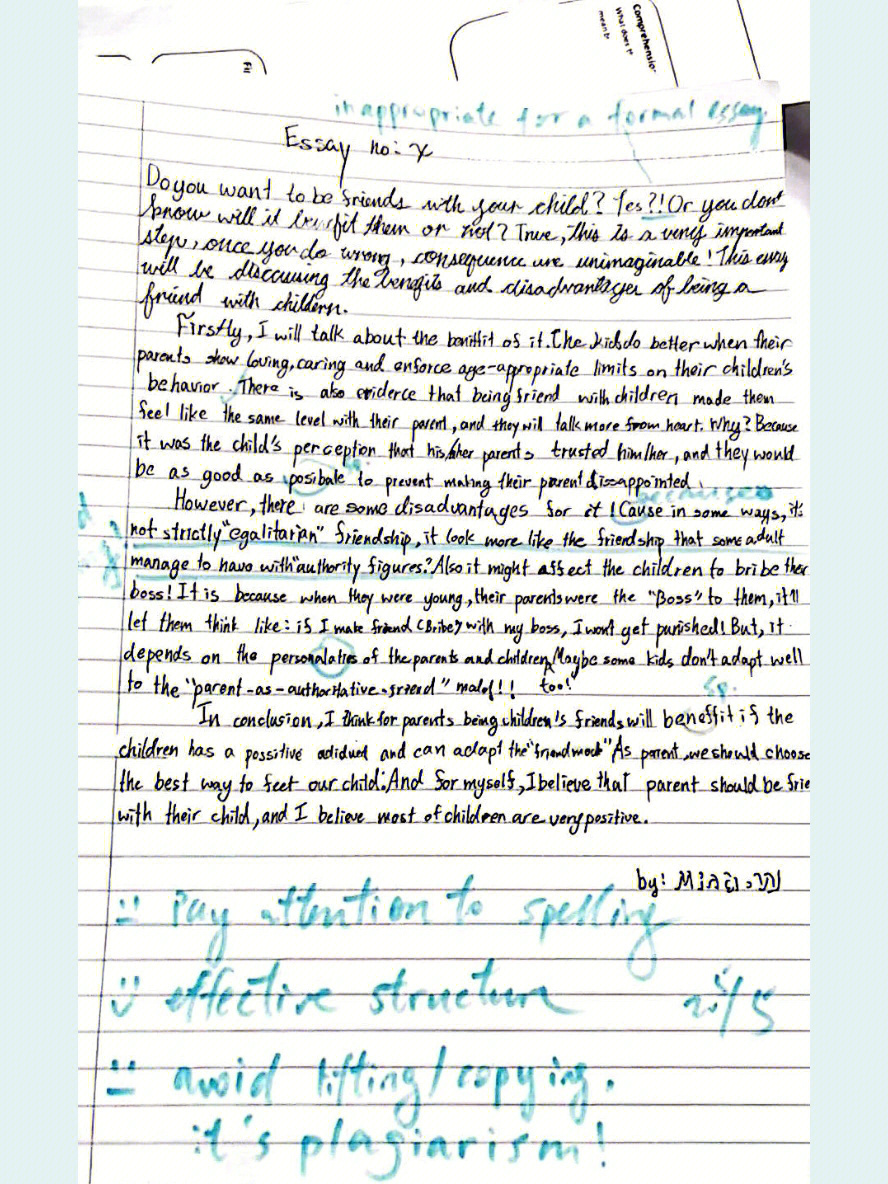 Comprehension
What does t
mean b
Fir
inappropriate for a formal essay.
Essay no: x
Do you want to be friends with your child? Yes?! Or you don't
know will it benifit them or not? True, this is a very important
step, once you do wrong, consequence are unimaginable! This essay
will be discausing the benefits and disadvantages of being a
friend with childern.
Firstly, I will talk about the benifit of it. The kids do better when their
parents show loving, caring and enforce age-appropriate limits on their children's
behavior. There is also evidence that being friend with children made them
feel like the same level with their parent, and they will talk more from heart. Why? Because
it was the child's perception that his/her parents trusted him/her, and they would
be as good as posibale to prevent making their parent dissappointed.
because
However, there are some disadvantages for it! Cause in some ways, it's
not strictly "egalitarian" friendship, it look more like the friendship that some adult
manage to have with "authority figures". Also it might affect the children to bribe their
boss! It is because when they were young, their parents were the "Boss" to them, it'll
let them think like: if I make friend (Bribe) with my boss, I won't get punished! But, it
depends on the personalaties of the parents and children, Maybe some kids don't adapt well
to the "parent-as-authoritative-friend" too!
sp.
In conclusion, I think for parents being children's friends will beneffit if the
children has a possitive and can adapt the As parent, we should choose
the best way to our child. And for myself, I believe that parent should be frie
with their child, and I believe most of children are very positive.
by:
Pay attention to spelling
effective structure
/5
avoid lifting/copying.
it's plagiarism!